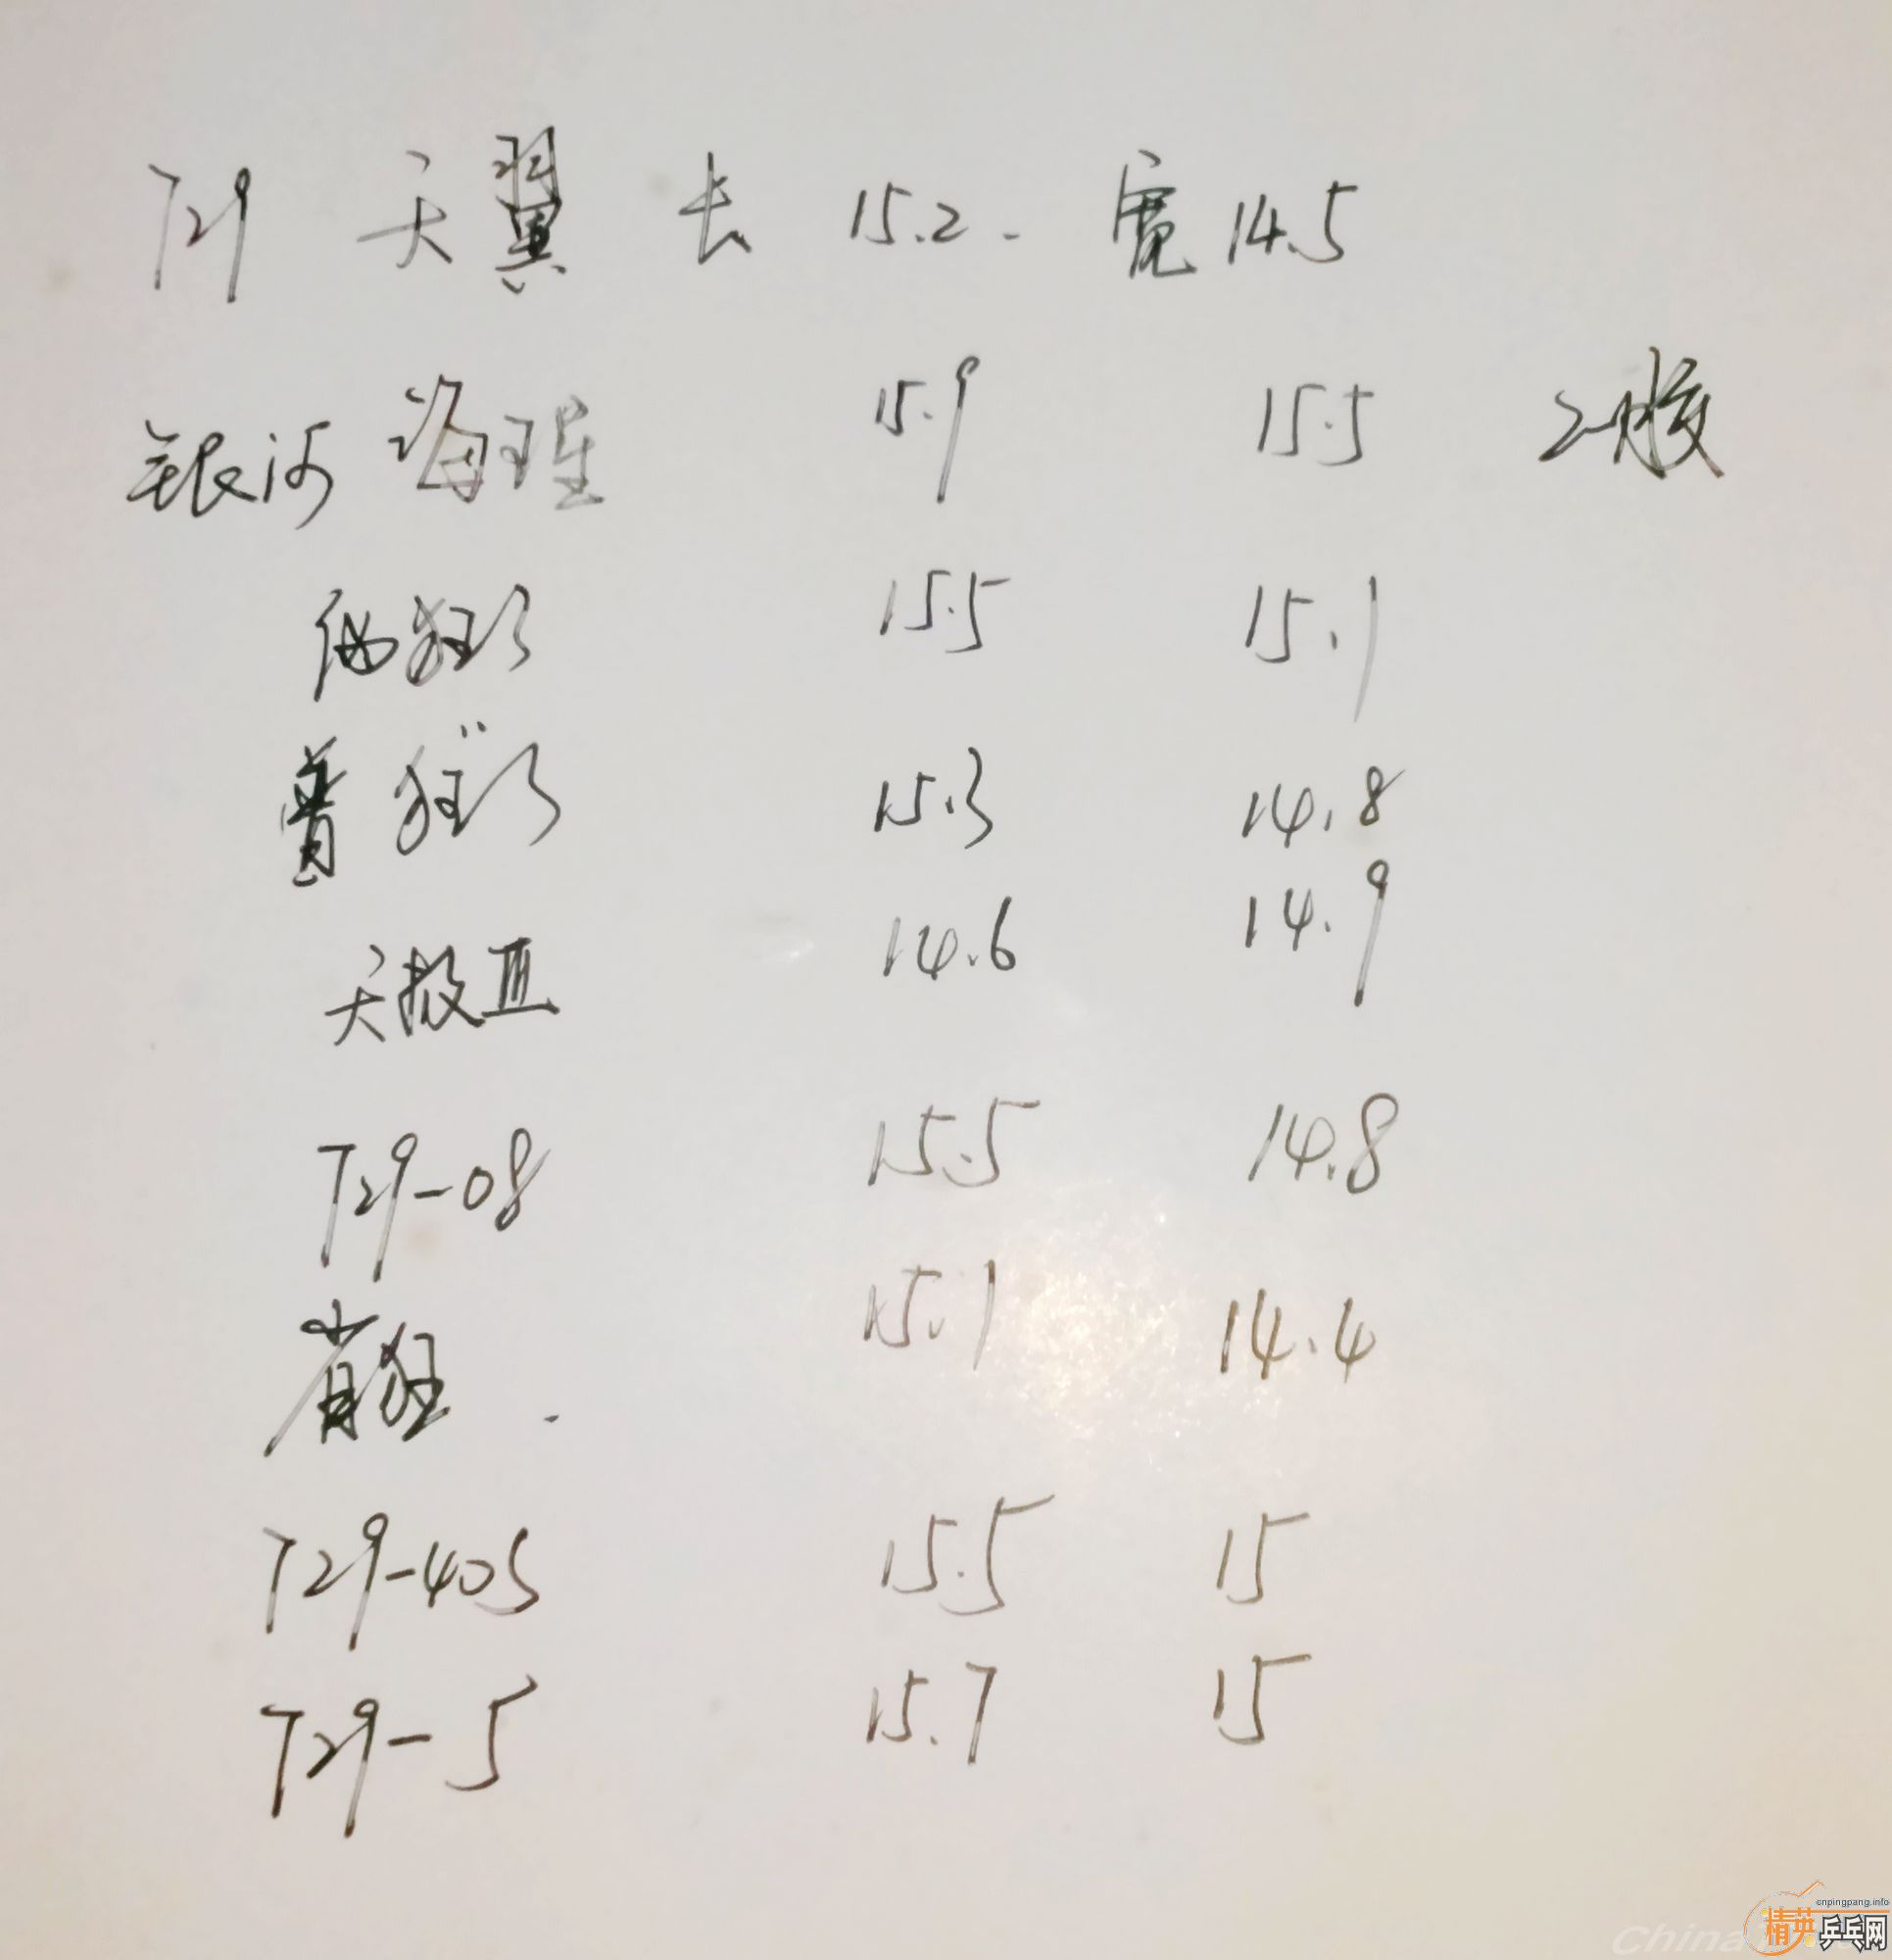 729 天翼 长 15.2. 宽 14.5
银河 海瑾 15.9 15.5 2胶
狂3 15.5 15.1
普 狂3 15.3 14.8
天极Ⅲ 14.6 14.9
729-08 15.5 14.8
省狂. 15.1 14.4
729-40S 15.5 15
729-5 15.7 15
China
cnpingpang.info
精英乒乓网